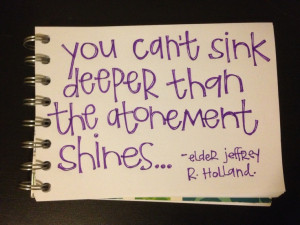 you can't sink
deeper than
the atonement
shines...
-elder jeffrey
R. Holland.